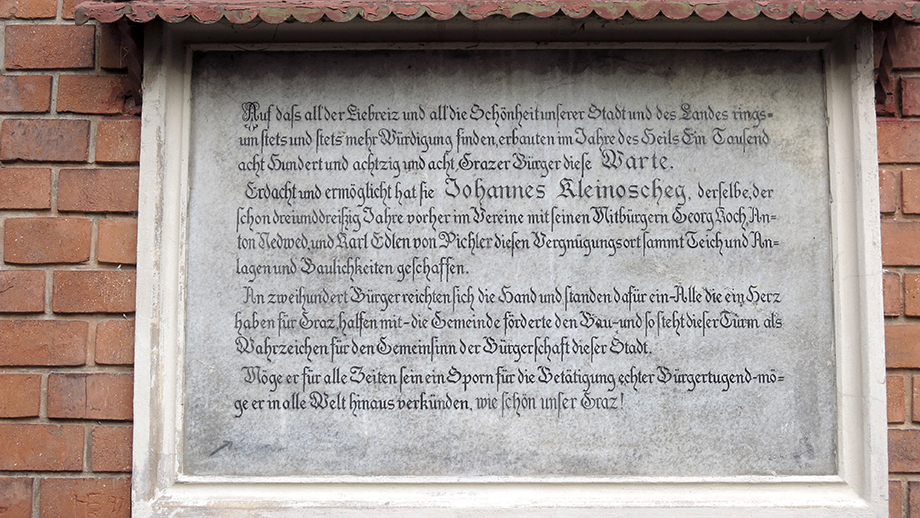 Auf daſs all' der Liebreiz und all' die Schönheit unserer Stadt und des Landes rings=
um stets und stets mehr Würdigung finden, erbauten im Jahre des Heils Ein Tausend
acht Hundert und achtzig und acht Grazer Bürger diese Warte.
Erdacht und ermöglicht hat sie Johannes Kleinoscheg, derselbe, der
schon dreiunddreißig Jahre vorher im Vereine mit seinen Mitbürgern Georg Koch, An=
ton Nedwed, und Karl Edlen von Pichler diesen Vergnügungsort sammt Teich und An=
lagen und Baulichkeiten geschaffen.
An zweihundert Bürger reichten sich die Hand und standen dafür ein-Alle die ein Herz
haben für Graz, halfen mit-die Gemeinde förderte den Bau-und so steht dieser Turm als
Wahrzeichen für den Gemeinsinn der Bürgerschaft dieser Stadt.
Möge er für alle Zeiten sein ein Sporn für die Betätigung echter Bürgertugend-mö=
ge er in alle Welt hinaus verkünden, wie schön unser Graz!